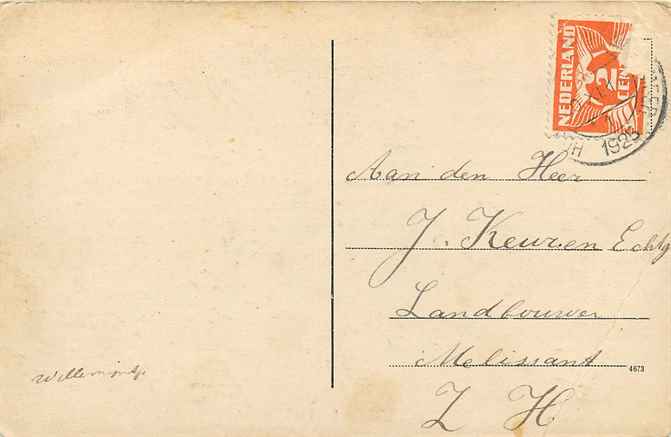 NEDERLAND
2
CENT
1925
Aan den Heer
J. Keuren Echtg
Landbouwer
Melissant
Z H
4673